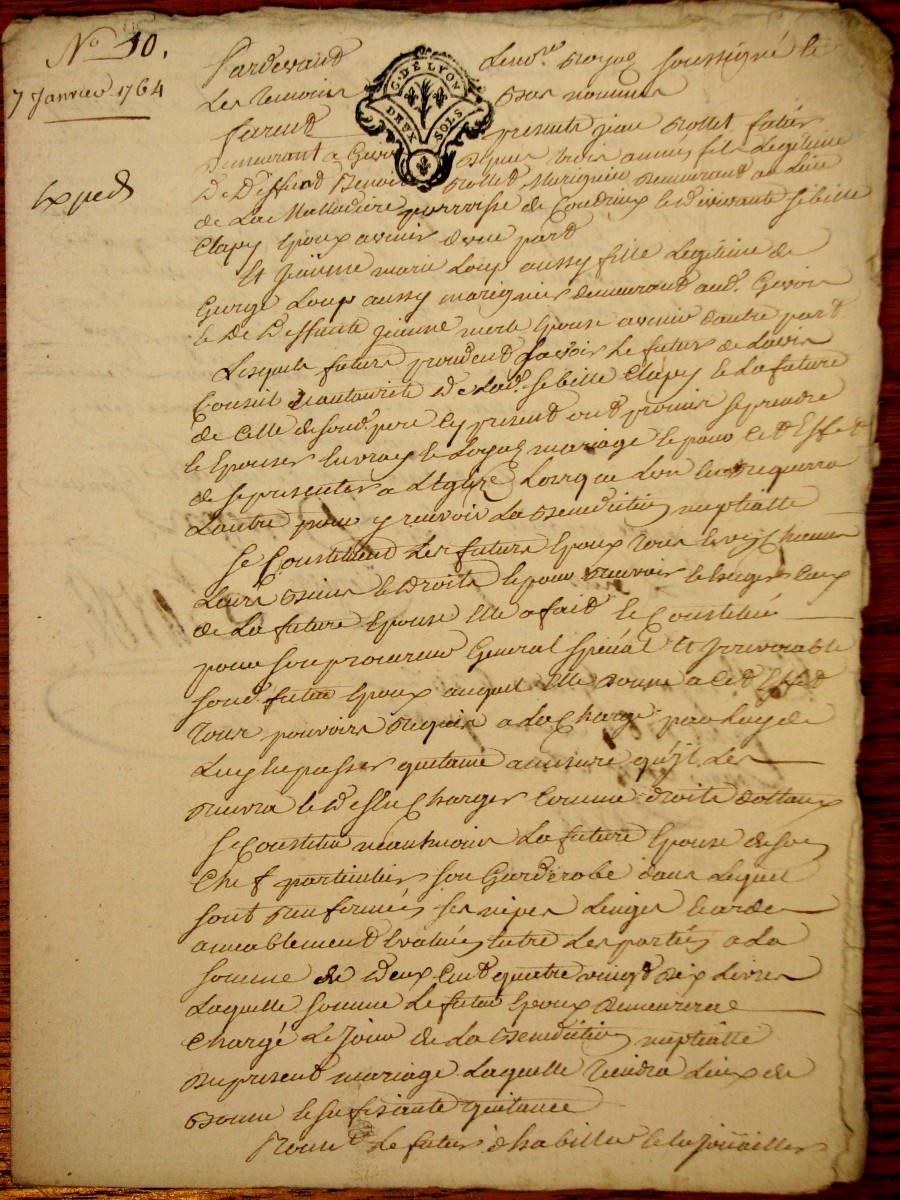 N° 10.
7 Janvier 1764
Exped
G. DE LYON
DEUX SOLS
Pardevand Le no.re Royal soussigné &
Les Temoins Bas nommés
furent presents jean Rollet
demeurant a Givors Depuis trois années fils Legitime
de Deffunt Benoit Rollet Marignier Demeurant au Lieu
de La Malladiere parroisse de Condrieux & de vivante sebille
Clapy Epoux avenir dune part
Et Jeanne marie Loup aussy fille Legitime de
George Loup aussy marignier demeurant aud. Givors
& de Deffunte jeanne merle Epouse avenir dautre part
Lesquels futurs procedent sçavoir Le futur de Lavis
Conseil & autorité de Lad. sebille Clapy & La future
de Celle de sond. pere Cy present ont promis se prendre
& Epouser En vray & Loyal mariage & pour Cet Effet
de se presenter a LEglise Lorsque Lun En Requerra
Lautre pour y recevoir La Benediction nuptialle
se Constituent Les futurs Epoux tous & un Chacun
Leurs Biens & Droits & pour Recevoir & Exiger Ceux
de La future Epouse Elle a fait & Constitué
pour son procureur General special Et Irrevocable
sond. futur Epoux auquel Elle donne a Cet Effet
Tous pouvoirs Requis a La Charge par Luy de
Luy En passer quitance a mesure qu'il Les
Recevra & de sEn Charger Comme droits dottaux
se Constitue neantmoins La future Epouse de son
Chef particulier son Garderobe dans Lequel
sont Renfermés ses nipes Linges hardes
ameablement Evalués Entre Les parties a La
somme de Deux Cent quatre vingt dix Livres
Laquelle somme Le futur Epoux Demeurera
Chargé Le jour de La Benediction nuptialle
Du present mariage Laquelle Tiendra Lieu de
Bonne & suffisante quitance
Promet Le futur dhabiller & Enjoüailler